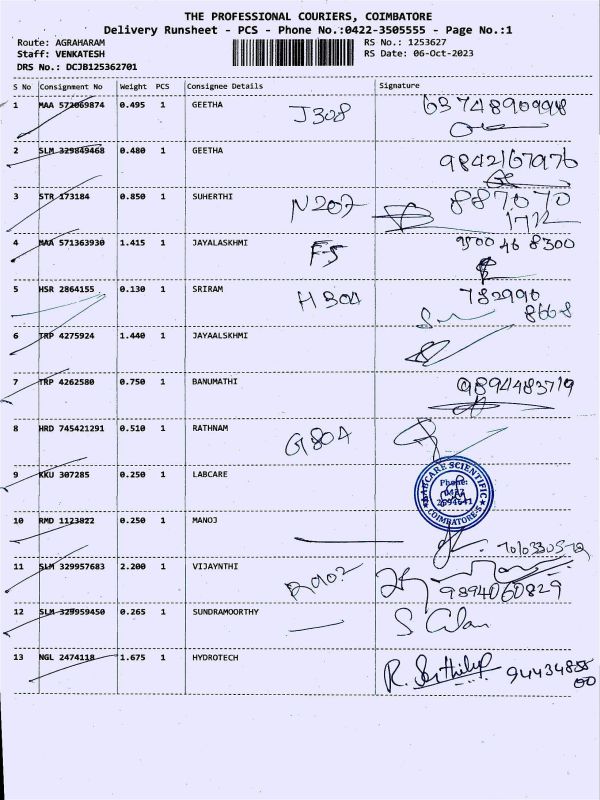 THE PROFESSIONAL COURIERS, COIMBATORE
Delivery Runsheet - PCS - Phone No.:0422-3505555 - Page No.:1
Route: AGRAHARAM RS No.: 1253627
Staff: VENKATESH RS Date: 06-Oct-2023
DRS No.: DCJB125362701
S No Consignment No Weight PCS Consignee Details Signature
1 MAA 572069874 0.495 1 GEETHA J308 6374890998
2 SLM 329849468 0.480 1 GEETHA 9842167976
3 STR 173184 0.850 1 SUHERTHI N207 887070
1712
4 MAA 571363930 1.415 1 JAYALASKHMI F-5 9500 46 8300
5 HSR 2864155 0.130 1 SRIRAM H304 782990
8668
6 TRP 4275924 1.440 1 JAYAALSKHMI
7 TRP 4262580 0.750 1 BANUMATHI 9894483719
8 HRD 745421291 0.510 1 RATHNAM G804
9 KKU 307285 0.250 1 LABCARE LABCARE SCIENTIFIC
Phone:
COIMBATORE-5
10 RMD 1123822 0.250 1 MANOJ
11 SLM 329957683 2.200 1 VIJAYNTHI 9894060829
12 SLM 329959450 0.265 1 SUNDRAMOORTHY
13 NGL 2474118 1.675 1 HYDROTECH R.